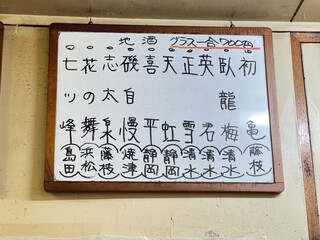 地酒 グラス一合700円
初亀 藤枝
臥龍梅 清水
英君 清水
正雪 清水
天虹 静岡
喜平 静岡
磯自慢 焼津
志太泉 藤枝
花の舞 浜松
七ツ峰 島田